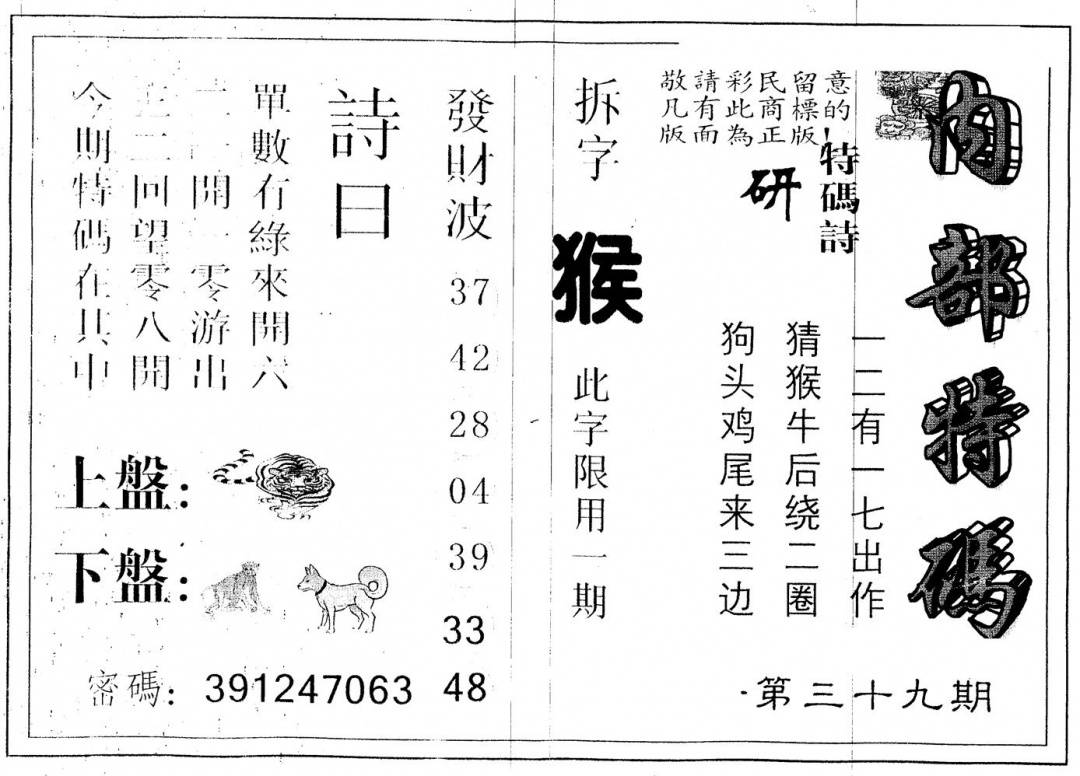 內部特碼
第三十九期
敬請彩民留意
几有此商標的
版面為正版
特碼詩
研
一二有一七出作
猜猴牛后绕二圈
狗头鸡尾来三边
拆字
猴
此字限用一期
發財波
37
42
28
04
39
33
48
詩曰
單數有綠來開六
開一零游出
二回望零八開
今期特碼在其中
上盤:
下盤:
密碼: 391247063